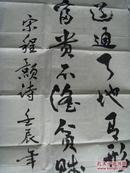 道通天地有形
富貴不淫貧賤
宋程顥詩 壬辰年